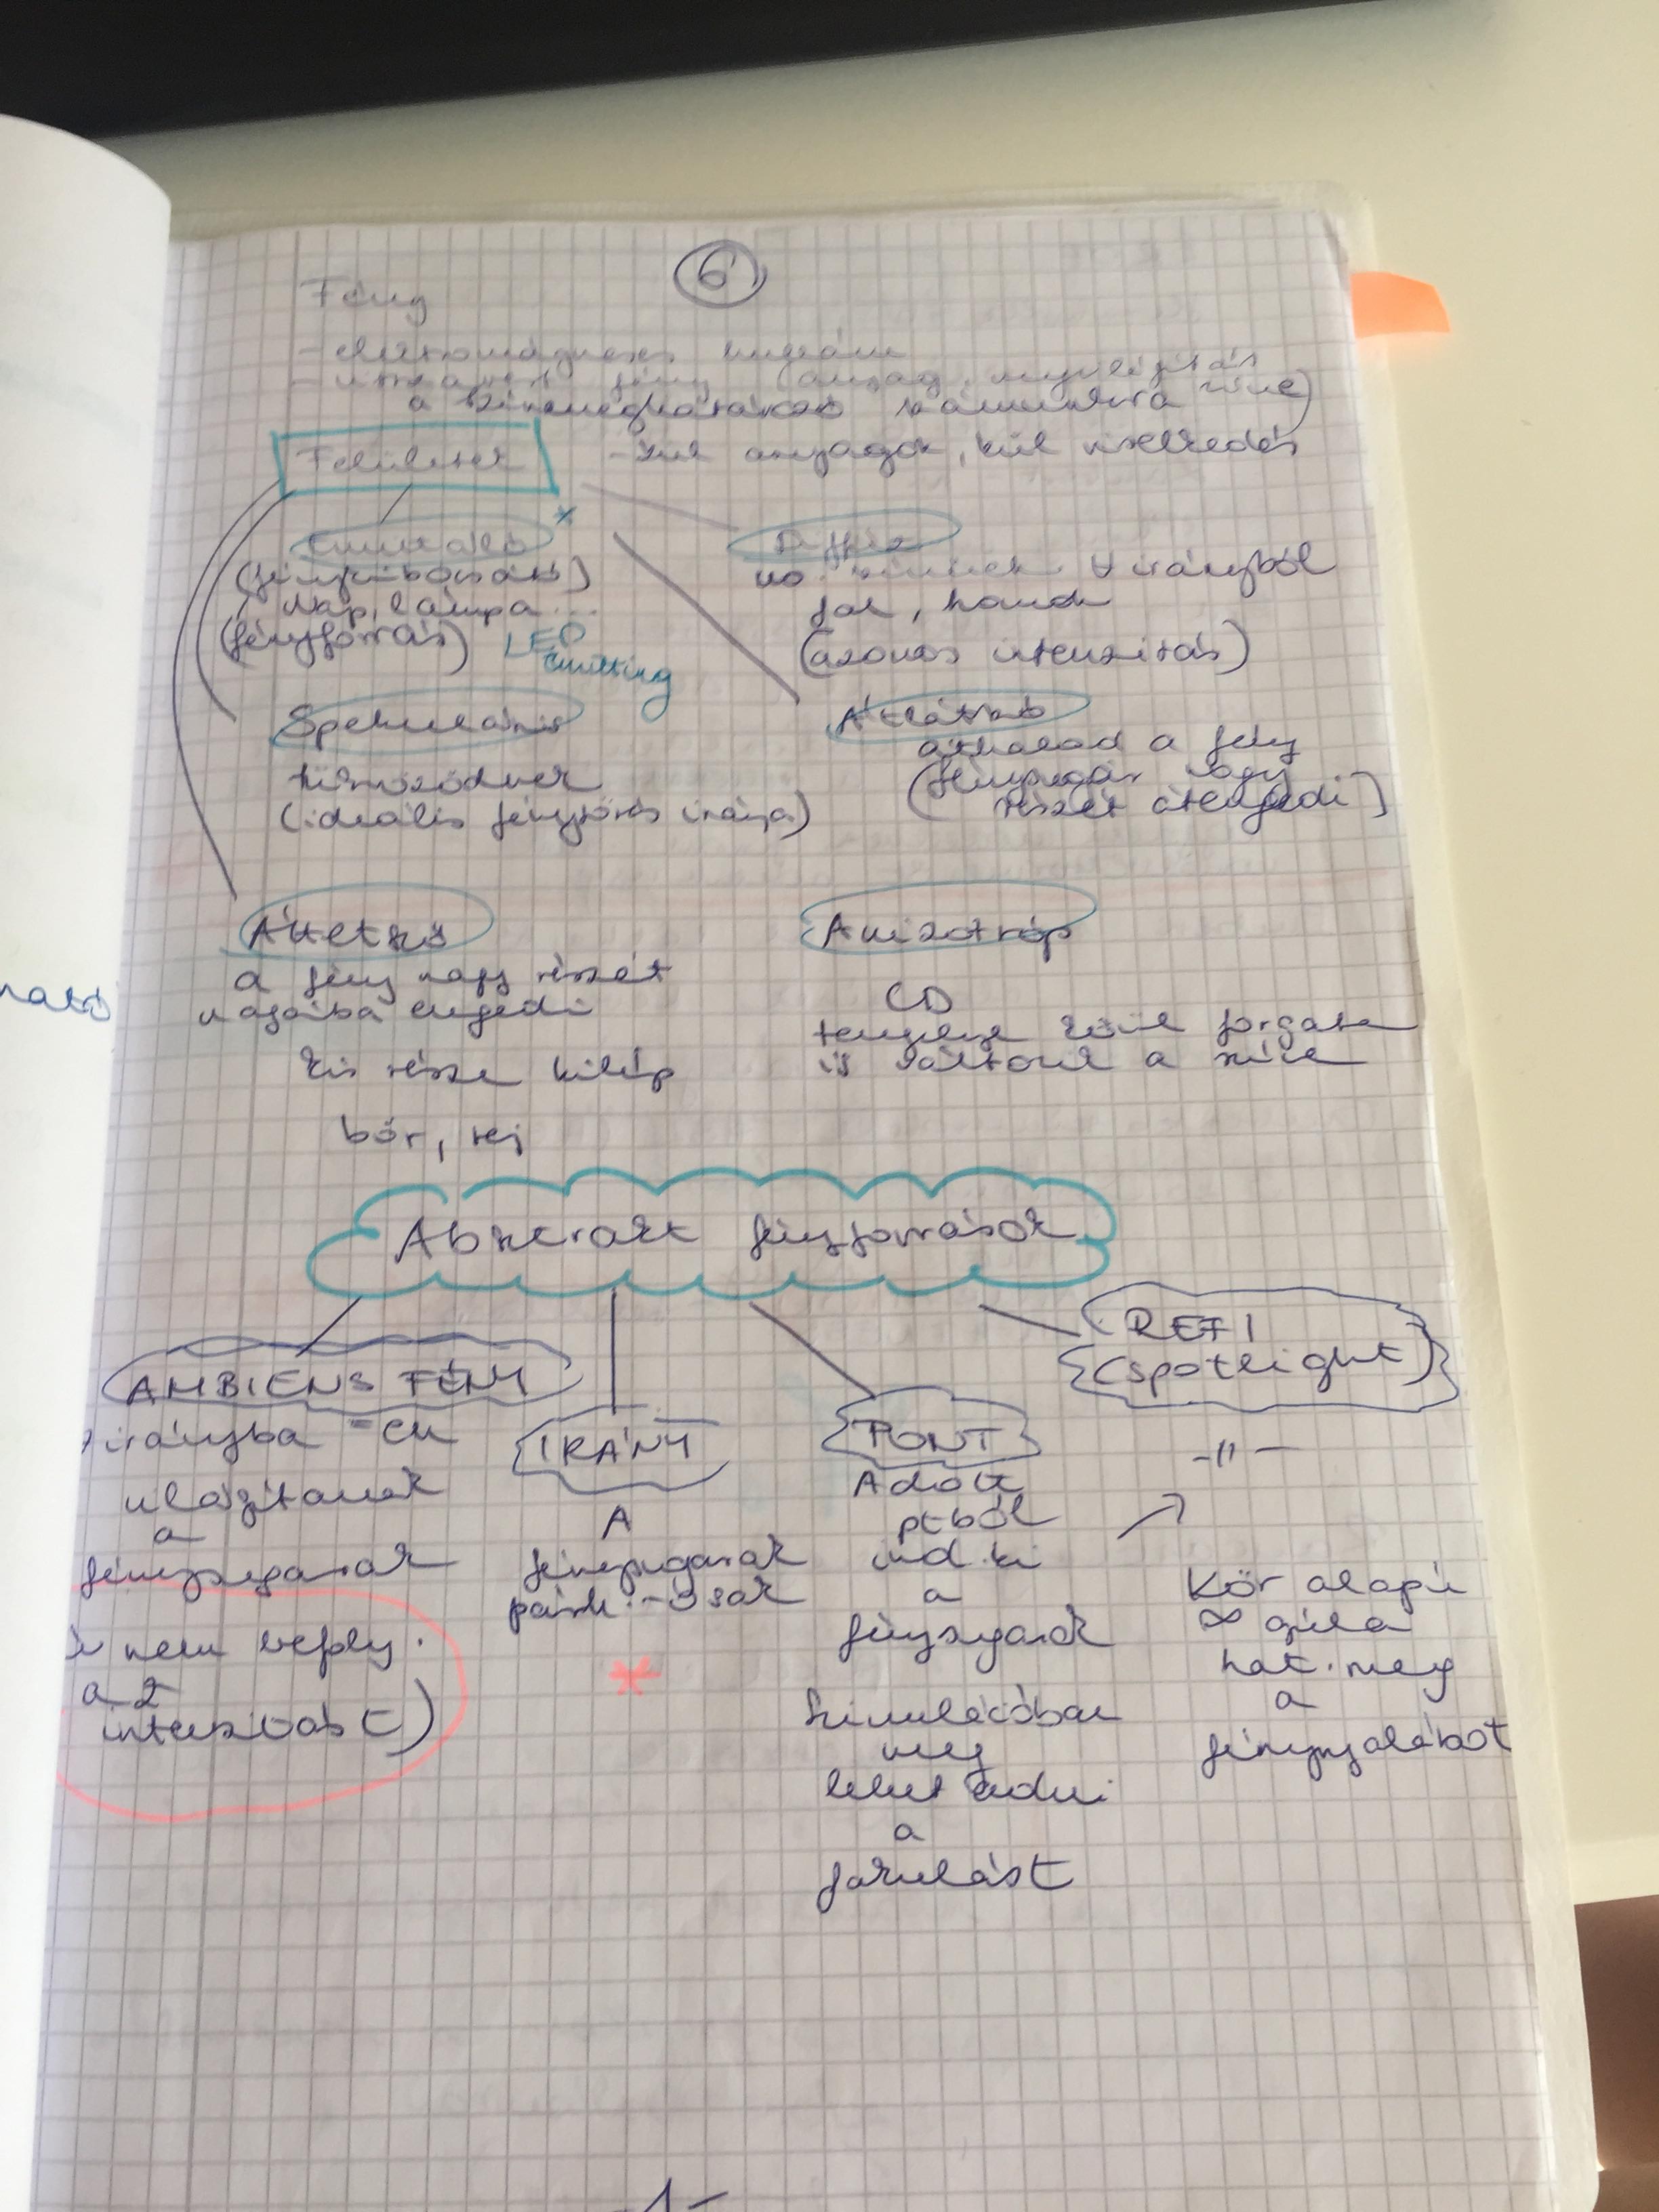 6
Fény
- elektromágneses hullám
fény (anyag, megvilágítás
a színmeghatározó számunkra színe)
Felületek - kül anyagok, kül viselkedés
Emittáló *
(fénykibocsátó)
Nap, lámpa ...
(fényforrás) LED
emitting
Diffúz
uo. színnek ∀ irányból
fal, homok
(azonos intenzitás)
Spekuláris
tükröződnek
(ideális fénytörés iránya)
Átlátszó
áthalad a fény
(fénysugár nagy
részét átengedi)
Áttetsző
a fény nagy részét
magába engedi
kis része kilép
bőr, tej
Anizotróp
CD
tengelye körül forgatva
is változik a színe
Absztrakt fényforrások
AMBIENS FÉNY
irányba =en
világítanak
a
fénysugarak
nem befoly.
a 2
intenzitást)
IRÁNY
A
fénysugarak
párh.-osak
*
PONT
Adott
ptból
ind. ki
a
fénysugarak
Szimulációban
meg
lehet adni
a
fakulást
REFI
(spotlight)
-11-
Kör alapú
∞ gúla
hat. meg
a
fénynyalábot